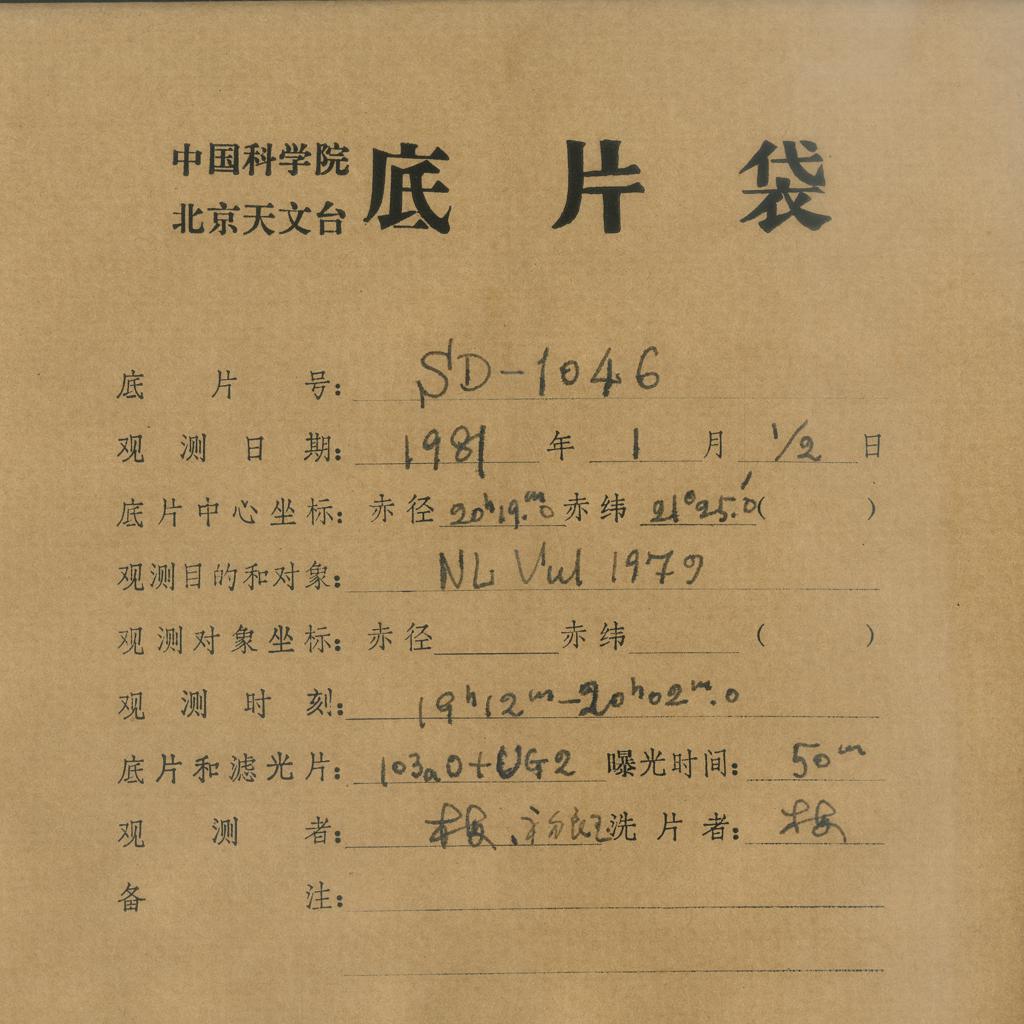 中国科学院
北京天文台
底片袋
底片号: SD-1046
观测日期: 1981年 1月 1/2日
底片中心坐标: 赤径 20ʰ19.ᵐ0 赤纬 21°25.'0 ( )
观测目的和对象: NL Vul 1979
观测对象坐标: 赤径 赤纬 ( )
观测时刻: 19ʰ12ᵐ-20ʰ02ᵐ.0
底片和滤光片: 103aO+UG2 曝光时间: 50ᵐ
观测者: 洗片者:
备注: